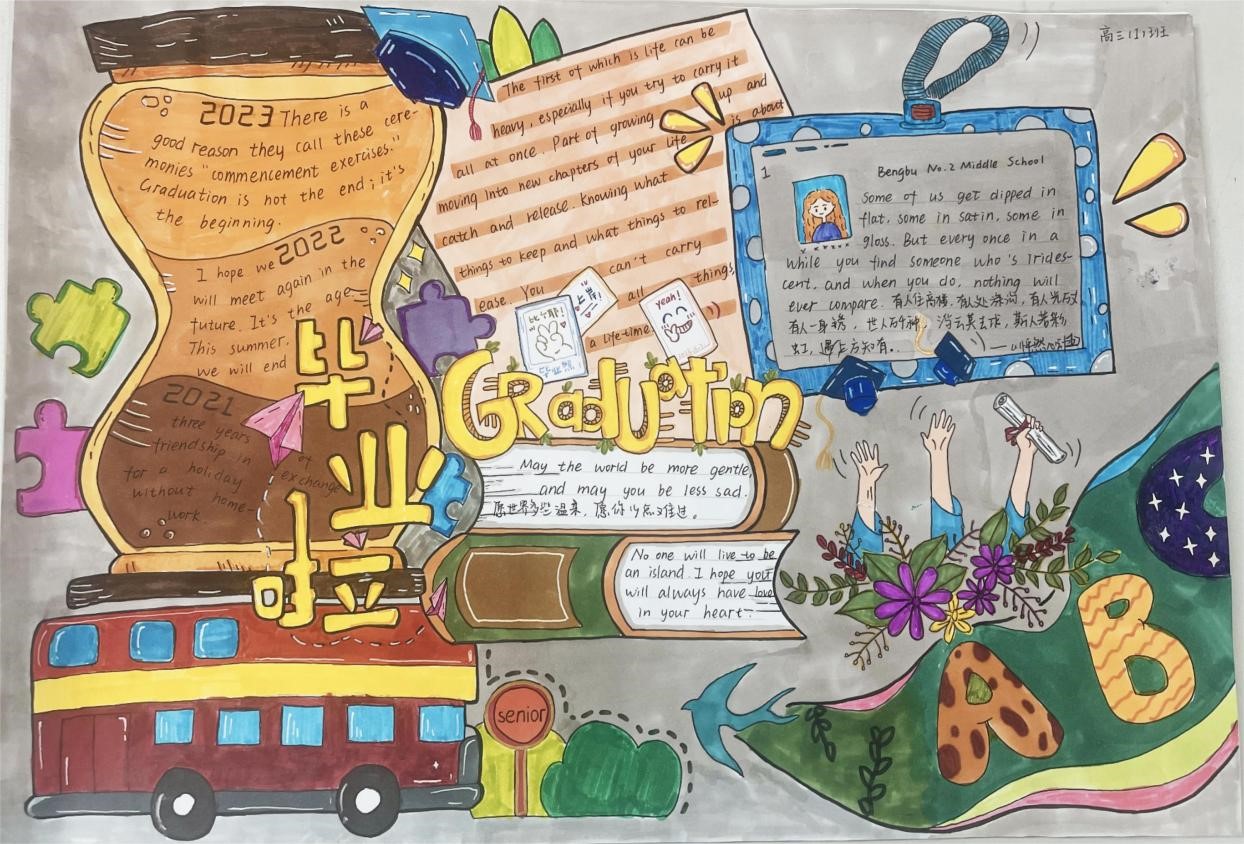 高三(1)班
2023 There is a
good reason they call these cere-
monies "commencement exercises."
Graduation is not the end; it's
the beginning.
2022
I hope we
will meet again in the
future. It's the age
This summer,
we will end
2021
three years
friendship in
for a holiday
without home-
work.
of
exchange
毕业啦
The first of which is life can be
heavy, especially if you try to carry it
all at once. Part of growing up and
moving into new chapters of your life is about
catch and release. Knowing what
things to keep and what things to rel-
ease. You can't carry
all things,
a life-time
yeah!
Graduation
May the world be more gentle,
and may you be less sad.
愿世界多些温柔,愿你少点难过。
No one will live to be
an island. I hope your
will always have love
in your heart.
1
Bengbu No.2 Middle School
Some of us get dipped in
flat, some in satin, some in
gloss. But every once in a
while you find someone who's Irides-
cent, and when you do, nothing will
ever compare. 有人住高楼,有人处深沟,有人光万
有人一身锈,世人万千种,浮云莫去求,斯人若彩
虹,遇上方知有。
senior
A
B
C